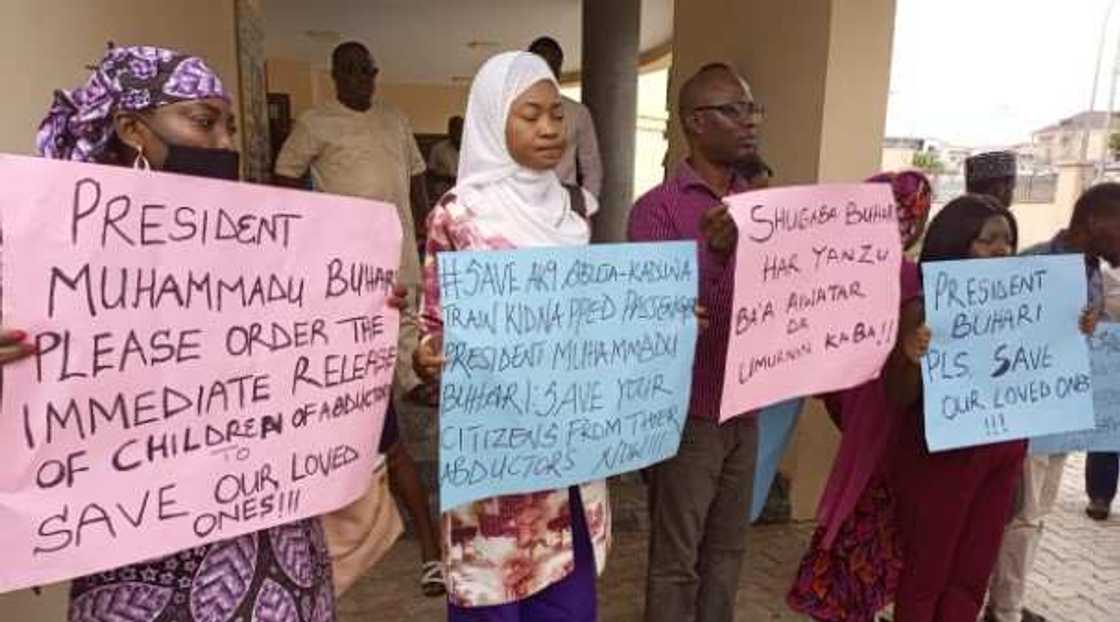 PRESIDENT
MUHAMMADU BUHARI
PLEASE ORDER THE
IMMEDIATE RELEASE
OF CHILDREN OF ABDUCTORS
TO
SAVE OUR LOVED
ONES!!!
#SAVE AK9 ABUJA-KADUNA
TRAIN KIDNAPPED PASSENGER
PRESIDENT MUHAMMADU
BUHARI: SAVE YOUR
CITIZENS FROM THIER
ABDUCTORS NOW!!!!
SHUGABA BUHARI
HAR YANZU
BA'A AIWATAR
DA
UMURNIN KABA!!
PRESIDENT
BUHARI
PLS SAVE
OUR LOVED ONES
!!!